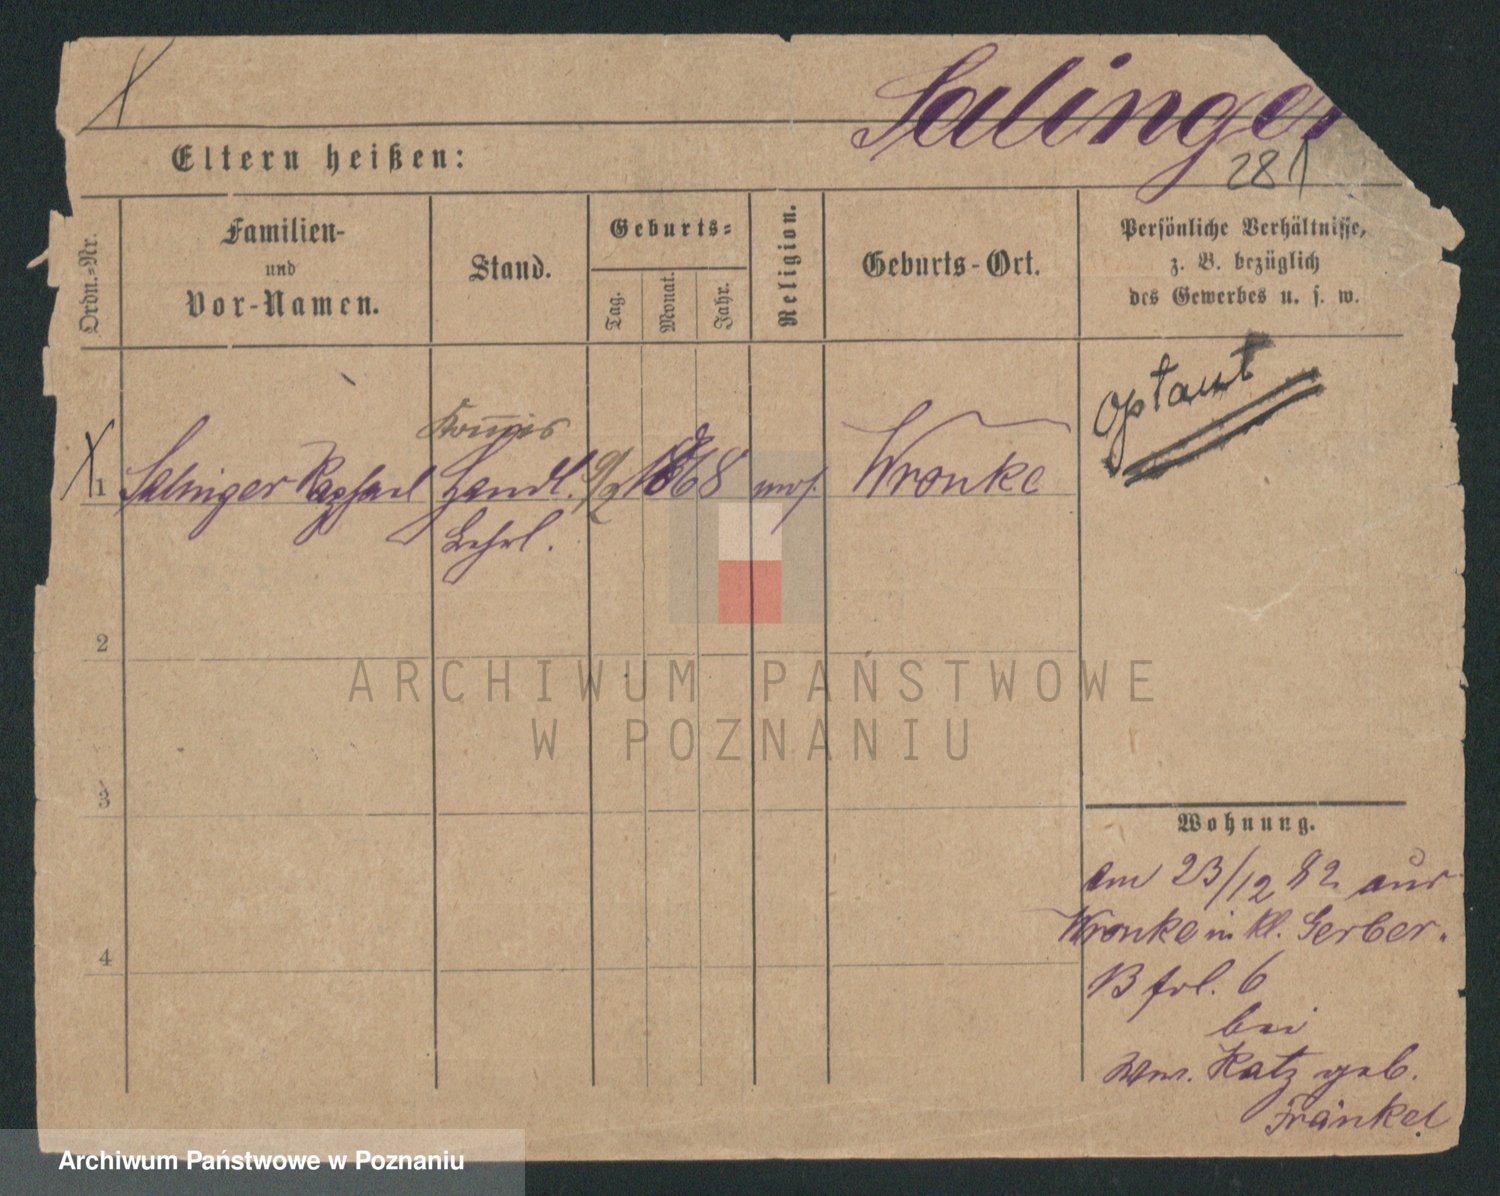 Salinger
281
Eltern heißen:
Ordn.-Nr.
Familien-
und
Vor-Namen.
Stand.
Geburts-
Tag.
Monat.
Jahr.
Religion.
Geburts-Ort.
Persönliche Verhältnisse,
z. B. bezüglich
des Gewerbes u. s. w.
Optant
Kommis
1 Salinger Raphael Handl. 9/2 1868 mos. Wronke
Lehrl.
2
3
4
Wohnung.
am 23/12 82 aus
Wronke in kl. Gerber-
B frl. 6
bei
Ww. Katz geb.
Fränkel
ARCHIWUM PAŃSTWOWE
W POZNANIU
Archiwum Państwowe w Poznaniu